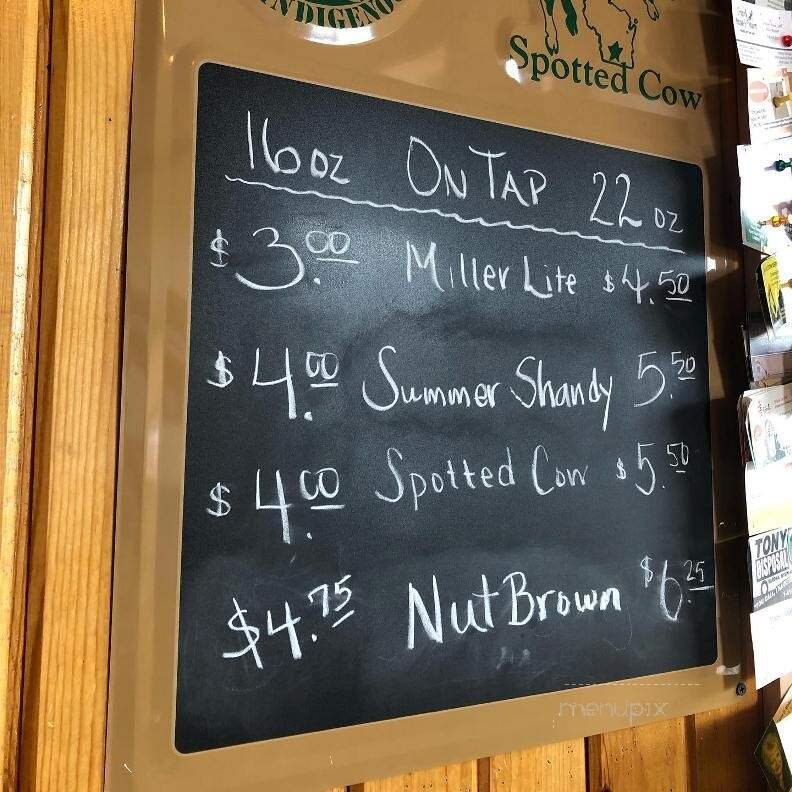 INDIGENO
Spotted Cow
16 oz ON TAP 22 oz
$3.00 Miller Lite $4.50
$4.00 Summer Shandy 5.50
$4.00 Spotted Cow $5.50
$4.75 Nut Brown $6.25
TONY
DISPOSAL
menupix